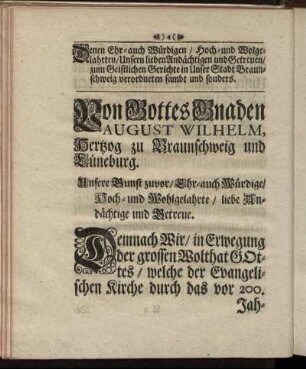 )4(
Denen Ehr- auch Würdigen / Hoch- und Wolge-
lahrten / Unsern lieben Andächtigen und Getreuen /
zum Geistlichen Gerichte in Unser Stadt Braun-
schweig verordneten sambt und sonders.
Von Gottes Gnaden
AUGUST WILHELM,
Hertzog zu Braunschweig und
Lüneburg.
Unsere Gunst zuvor / Ehr- auch Würdige /
Hoch- und Wohlgelahrte / liebe An-
dächtige und Getreue.
Demnach Wir / in Erwegung
der grossen Wolthat GOt-
tes / welche der Evangeli-
schen Kirche durch das vor 200.
Jah-